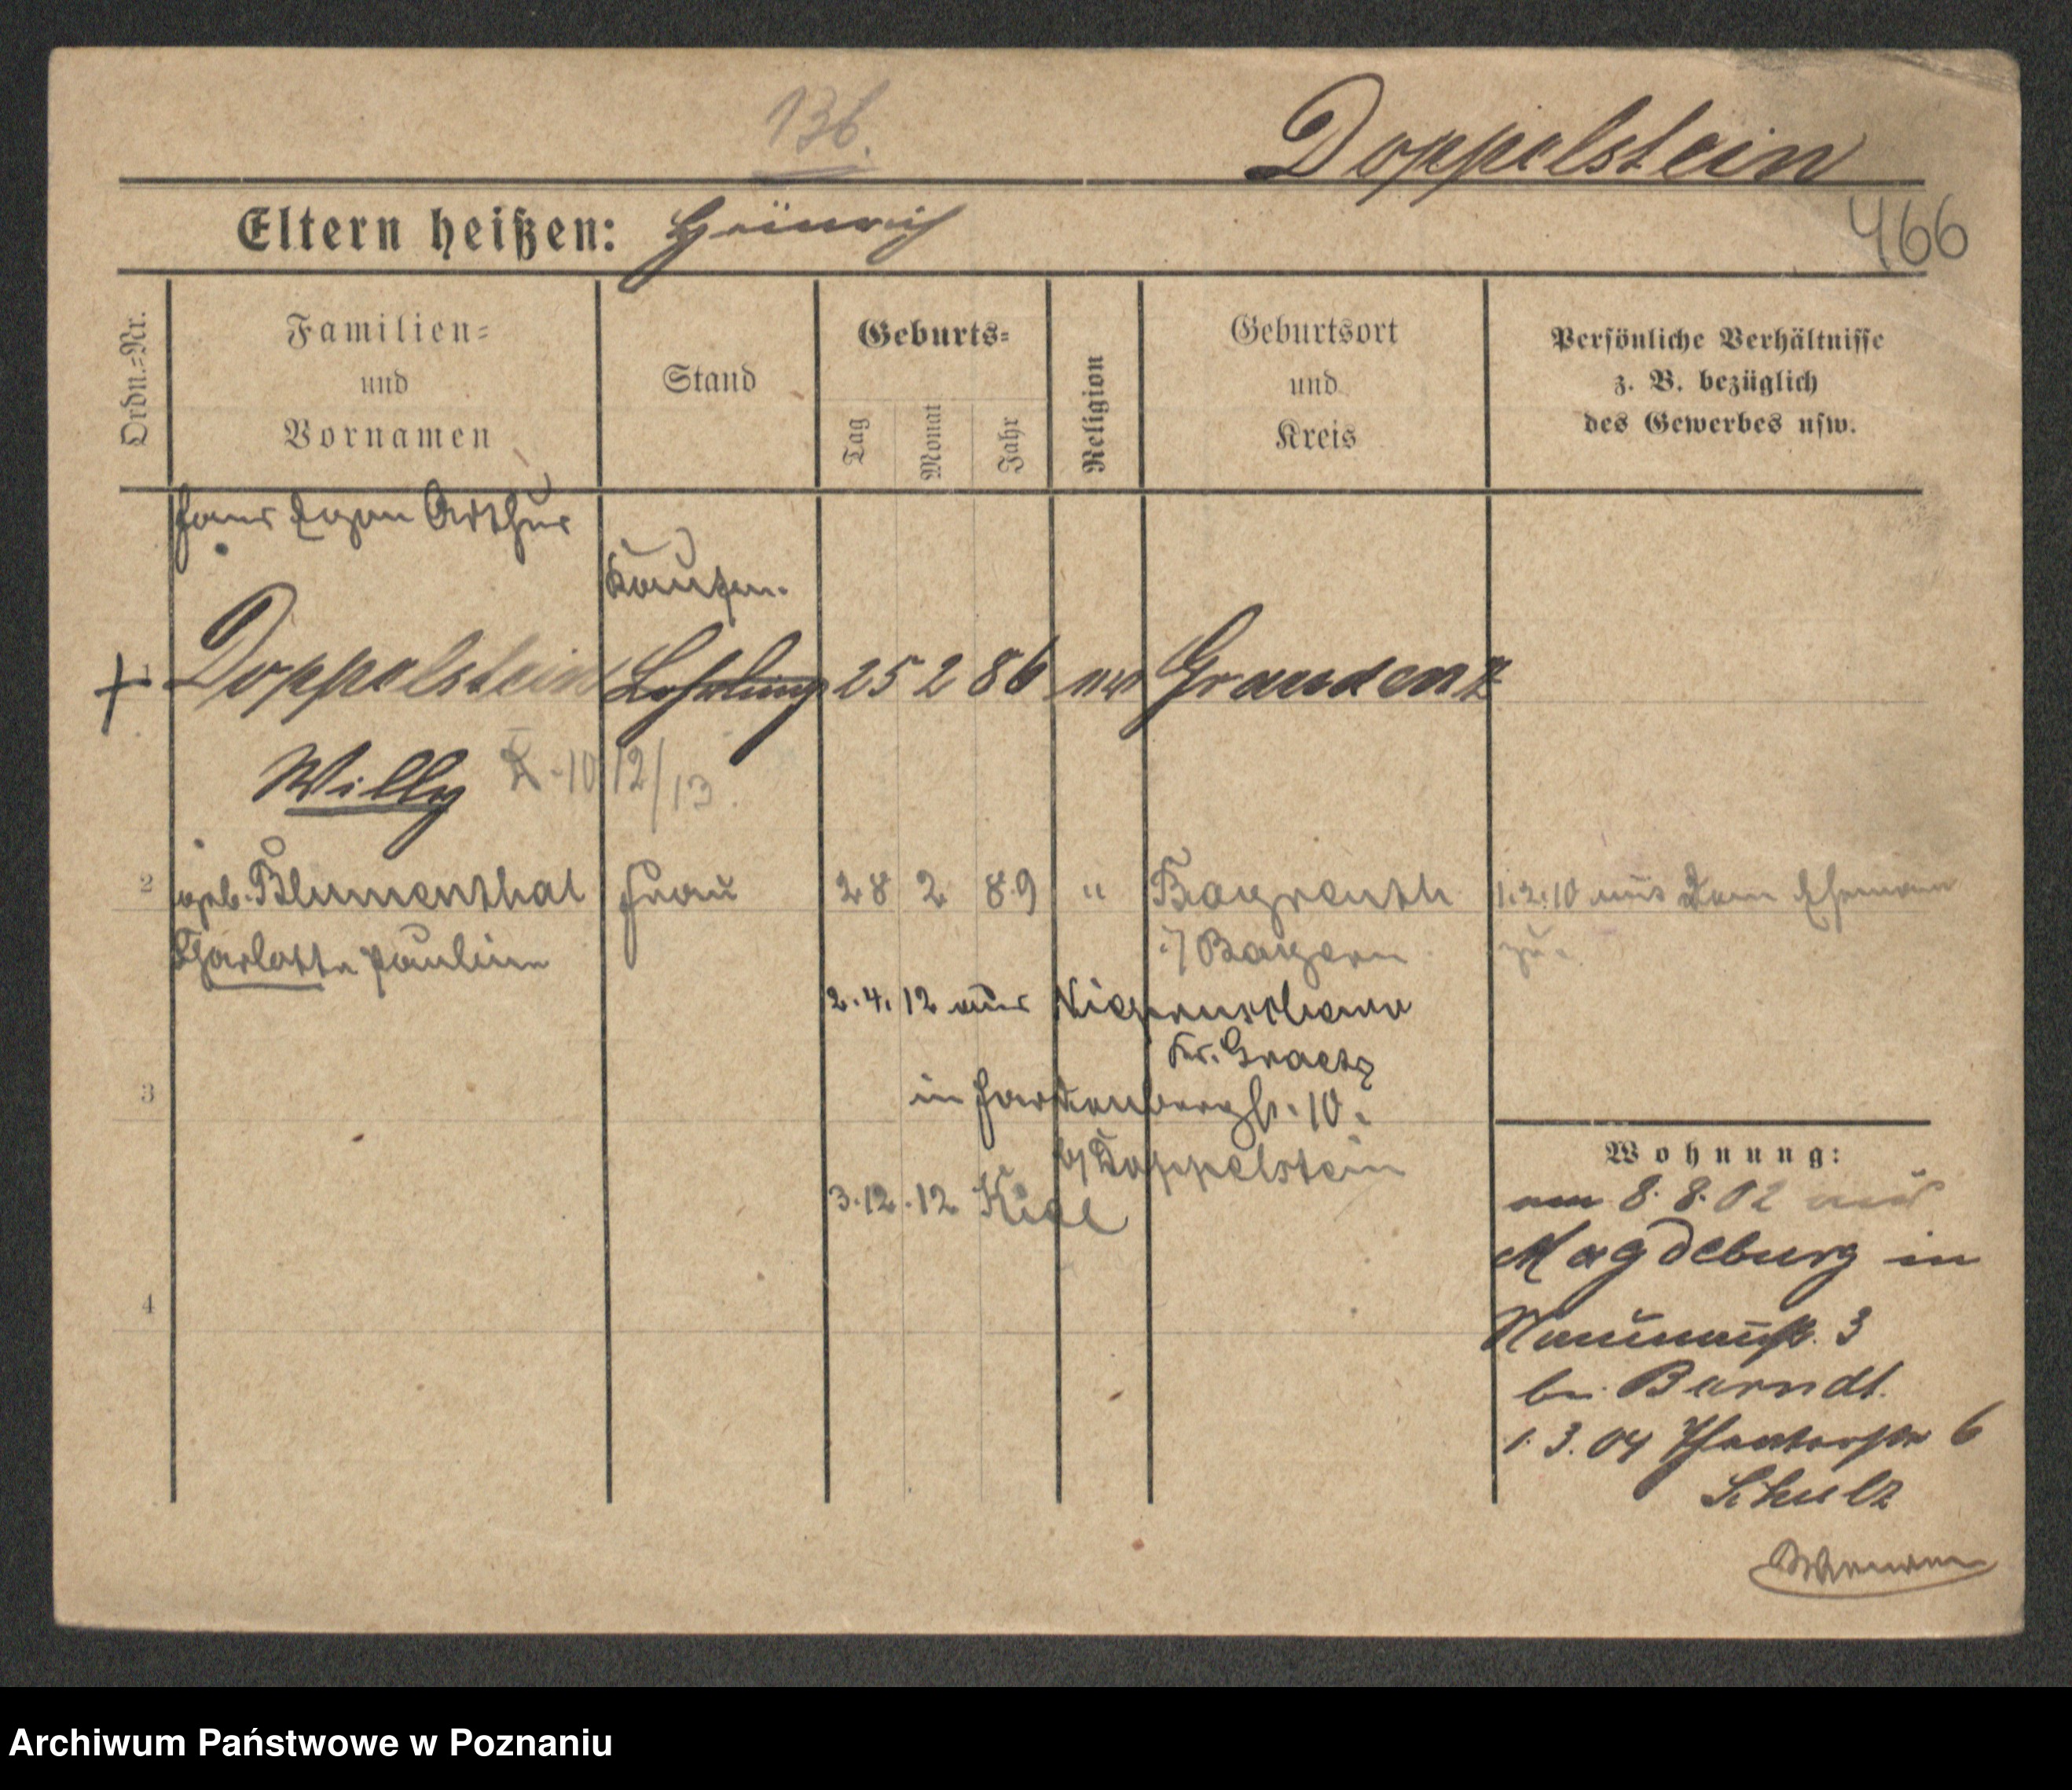 136.
Doppelstein
Eltern heißen: Heinrich
466
Ordn.=Nr.
Familien=
und
Vornamen
Stand
Geburts=
Tag
Monat
Jahr
Religion
Geburtsort
und
Kreis
Persönliche Verhältnisse
z. B. bezüglich
des Gewerbes usw.
Hans Egon Arthur
Kaufm.
Doppelstein Lehrling 25 2 86 Graudenz
Willy 10 12/13.
2 geb. Blumenthal Frau 28 2 89 " Bayreuth 1.2.10 mit dem Ehemann
Charlotte Pauline i/Bayern zu.
2.4.12 aus
Kr. Graetz
3 in Hardenbergstr. 10.
b/ Doppelstein
3.12.12 Kiel
4
Wohnung:
am 8.8.02 aus
Magdeburg in
Naumannstr. 3
bei Barndt.
1.3.04 6
Schulz
Archiwum Państwowe w Poznaniu